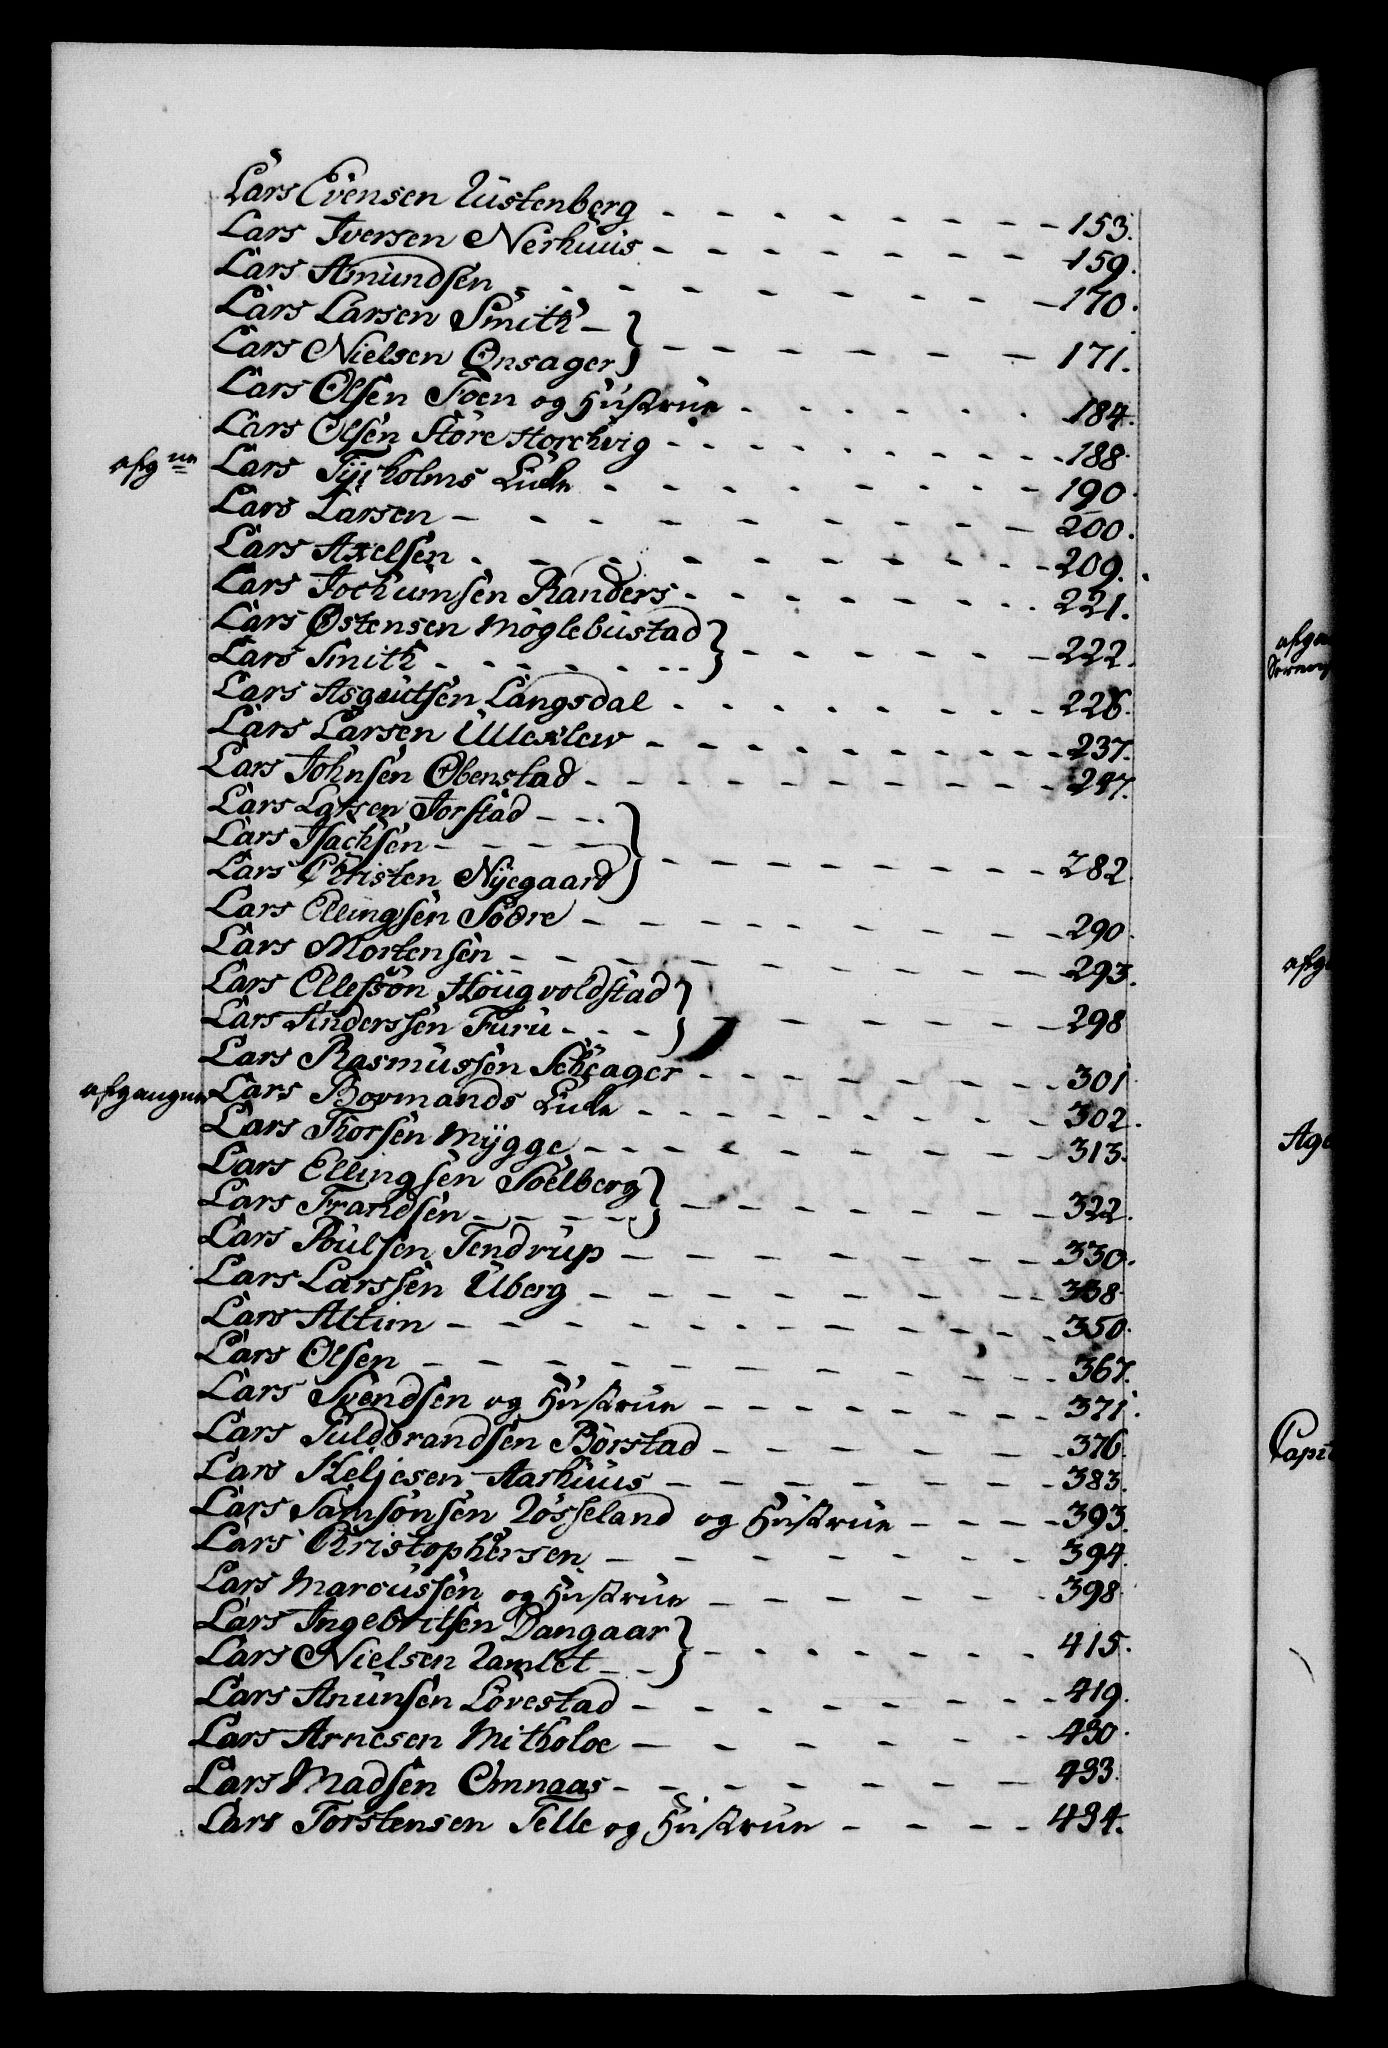 Lars Evensen Rustenberg - - - - - - - - 153.
Lars Iversen Nerhuus - - - - - - - - 159.
Lars Amundsen - - - - - - - - 170.
Lars Larsen Smith - }
Lars Nielsen Onsager } - - - - - - 171.
Lars Olsen Foen og Hustrue - - - - - - 184.
Lars Olsen Store Horchvig - - - - - - - - 188.
afgne Lars Tyrholms Liden - - - - - - - - 190.
Lars Larsen - - - - - - - - 200.
Lars Axelsen - - - - - - - - 209.
Lars Jochumsen Randers - - - - - - - 221.
Lars Østensen Møglebustad }
Lars Smith - - - - - - } - - - - - - 222.
Lars Asgautsen Langsdal - - - - - - - - 226.
Lars Larsen Ullexlew - - - - - - - - 237.
Lars Johnsen Obenstad - - - - - - - - 247.
Lars Larsen Jorstad - - - }
Lars Isachsen - - - - - }
Lars Christen Nyegaard } - - - - - - - - 282.
Lars Ellingsen Södre - - - - - - - - 290.
Lars Mortensen - - - - - - - - 293.
Lars Ellefsön Hougvoldstad }
Lars Anderssen Furu - - - } - - - - - - 298
Lars Rasmussen Scheager - - - - - - - 301
afgangne Lars Bormands Liden - - - - - - - - 302.
Lars Thorsen Mygge - - - - - - - - 313.
Lars Ellingsen Soelberg }
Lars Frandsen - - - - - } - - - - - - - 322.
Lars Poulsen Tendrup - - - - - - - 330.
Lars Larssen Uberg - - - - - - - - 338.
Lars Altim - - - - - - - - - - 350.
Lars Olsen - - - - - - - - - - 367.
Lars Svendsen og Hustrue - - - - - - - 371.
Lars Guldbrandsen Börstad - - - - - - 376.
Lars Keljesen Aarhuus - - - - - - - 383.
Lars Samsonsen Rosseland og Hustrue - - - - 393.
Lars Christophersen - - - - - - - 394.
Lars Marcussen og Hustrue - - - - - - 398.
Lars Ingebritsen Dangaar }
Lars Nielsen Ramlet - - } - - - - - - 415.
Lars Anunsen Lovestad - - - - - - - - 419.
Lars Arnesen Mitholoe - - - - - - 430.
Lars Madsen Omnaas - - - - - - - 433.
Lars Torstensen Telle og Hustrue - - - - 434.